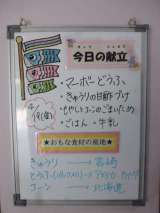 今日の献立
・マーボーどうふ
・きゅうりの甘酢づけ
・もやしとコーンのごまいため
・ごはん・牛乳
4/19(金)
★おもな食材の産地★
きゅうり → 宮崎
コーン → 北海道